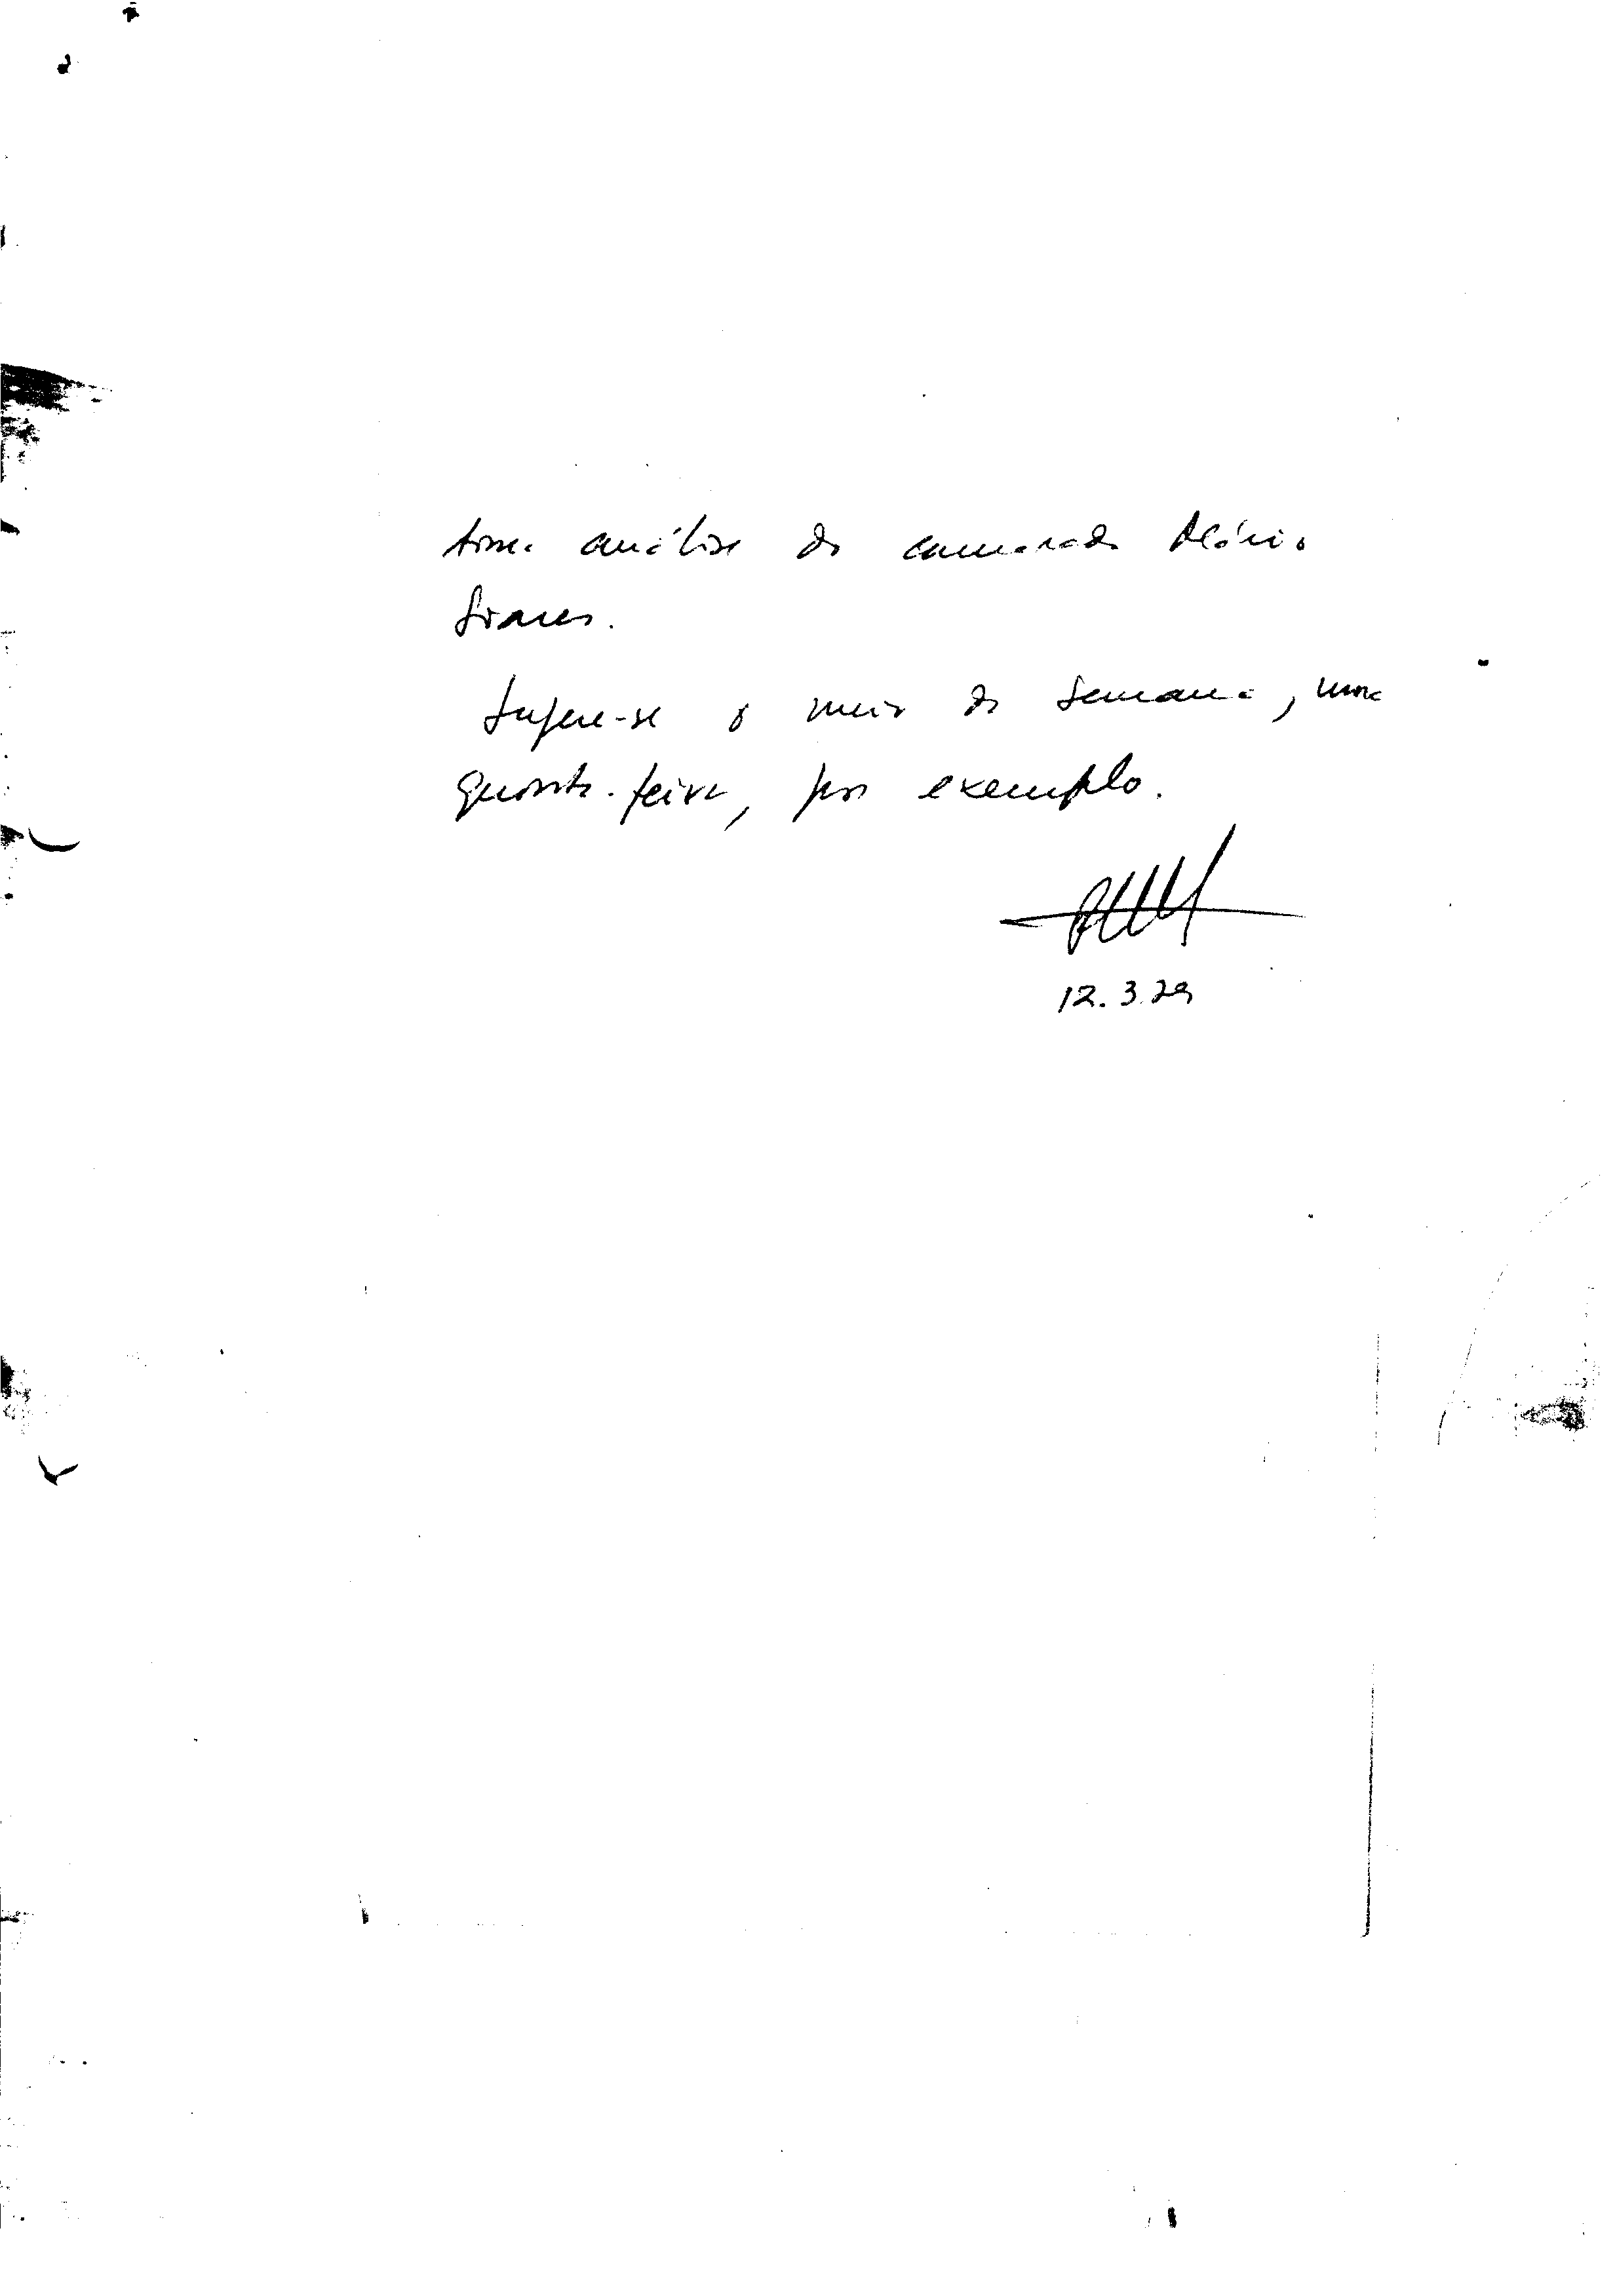 análise do camarada Mário
Soares.
Sugere-se o meio da semana, uma
quarta-feira, por exemplo.
12.3.79